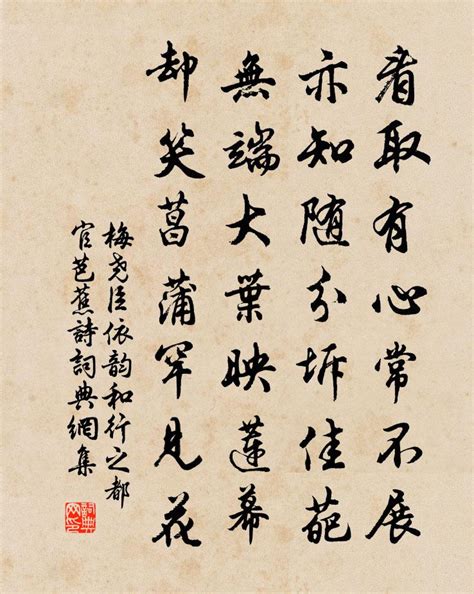 看取有心常不展
亦知随分坼佳葩
無端大葉映蓮幕
却笑菖蒲罕見花
梅堯臣依韵和行之都
官芭蕉詩詞典網集